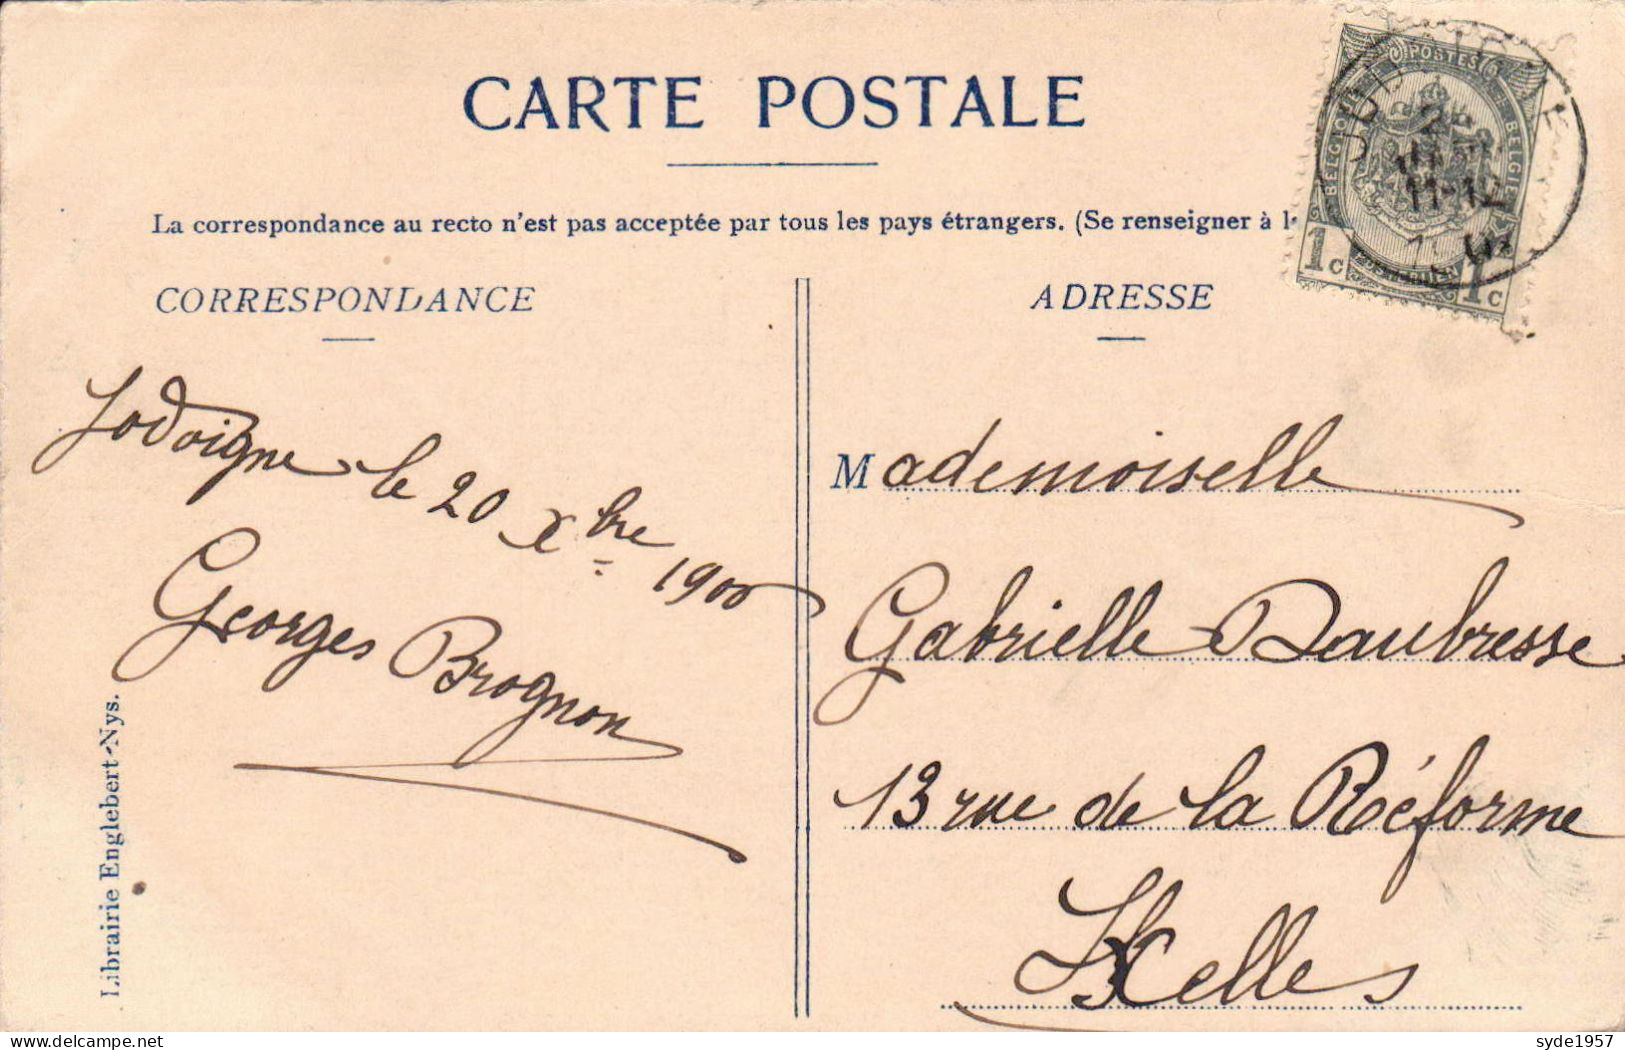 CARTE POSTALE
La correspondance au recto n'est pas acceptée par tous les pays étrangers. (Se renseigner à
CORRESPONDANCE
ADRESSE
POSTES
BELGIQUE
BELGIE
1c
1c
11-12
Jodoigne le 20 Xbre 1900
Georges Brognon
Mademoiselle
Gabrielle Daubresse
13 rue de la Réforme
Ixelles
Librairie Englebert-Nys.
syde1957